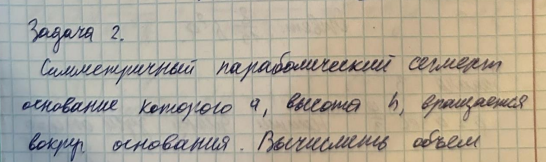 Задача 2.
Симметричный параболический сегмент
основание которого a, высота h, вращается
вокруг основания. Вычислить объем